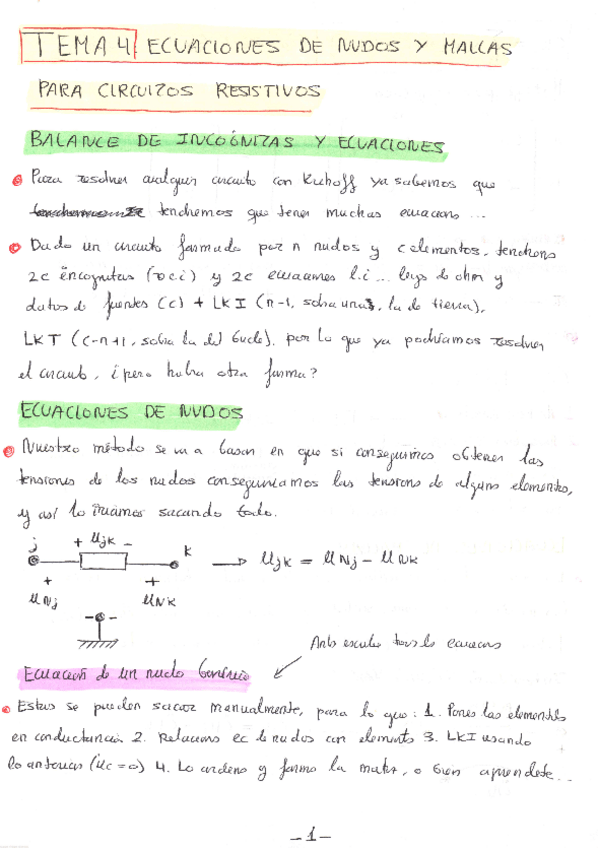 TEMA 4 ECUACIONES DE NUDOS Y MALLAS
PARA CIRCUITOS RESISTIVOS
BALANCE DE INCOGNITAS Y ECUACIONES
Para resolver cualquier circuito con Kirhoff ya sabemos que
tendremos que tener muchas ecuacions ...
Dado un circuito formado por n nudos y c elementos, tendrems
2c incognitas (v e i) y 2c ecuaciones l.i ... leyes de ohm y
datos de fuentes (c) + LKI (n-1, sobra una, la de tierra),
LKT (c-n+1, sobra la del bucle), por lo que ya podríamos resolver
el circuito, ¿pero habra otra forma?
ECUACIONES DE NUDOS
Nuestro método se va a basar en que si conseguimos obtener las
tensiones de los nudos conseguiriamos las tensions de algunos elementos,
y así lo iriamos sacando todo.
j + Ujk - k
Ujk = UNj - UNk
+ +
UNj UNk
- -
Ecuación de un nudo Generico
Estas se pueden sacar manualmente, para lo que: 1. Pones los elementos
en conductancia 2. Relacions ec de nudos con elements 3. LKI usando
lo anterior 4. Lo ordeno y formo la matriz, o bien aprendete...
-1-